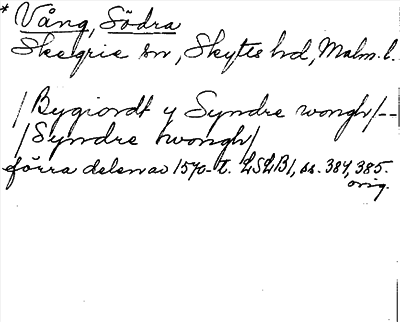 * Vång, Södra
Skegrie sn, Skytts hd, Malm. l.
/Bygiordt y Syndre wongh/--
/Syndre wongh/
förra delen av 1570-t. LSLB1, ss. 384, 385.
orig.